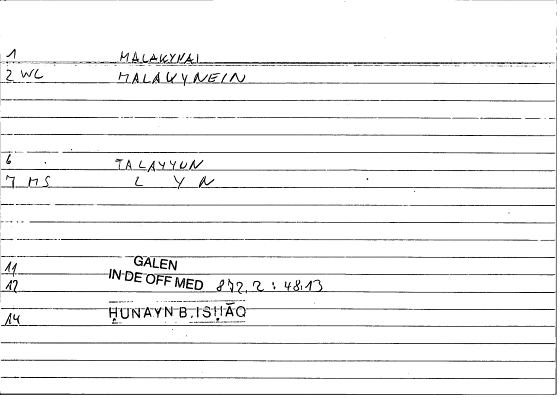 1 MALAKYNAI
2 WL MALAKYNEIN
6 . TALAYYUN
7 MS L Y N
11 GALEN
12 IN DE OFF MED 872,2 : 48,13
14 ḤUNAYN B. ISḤĀQ